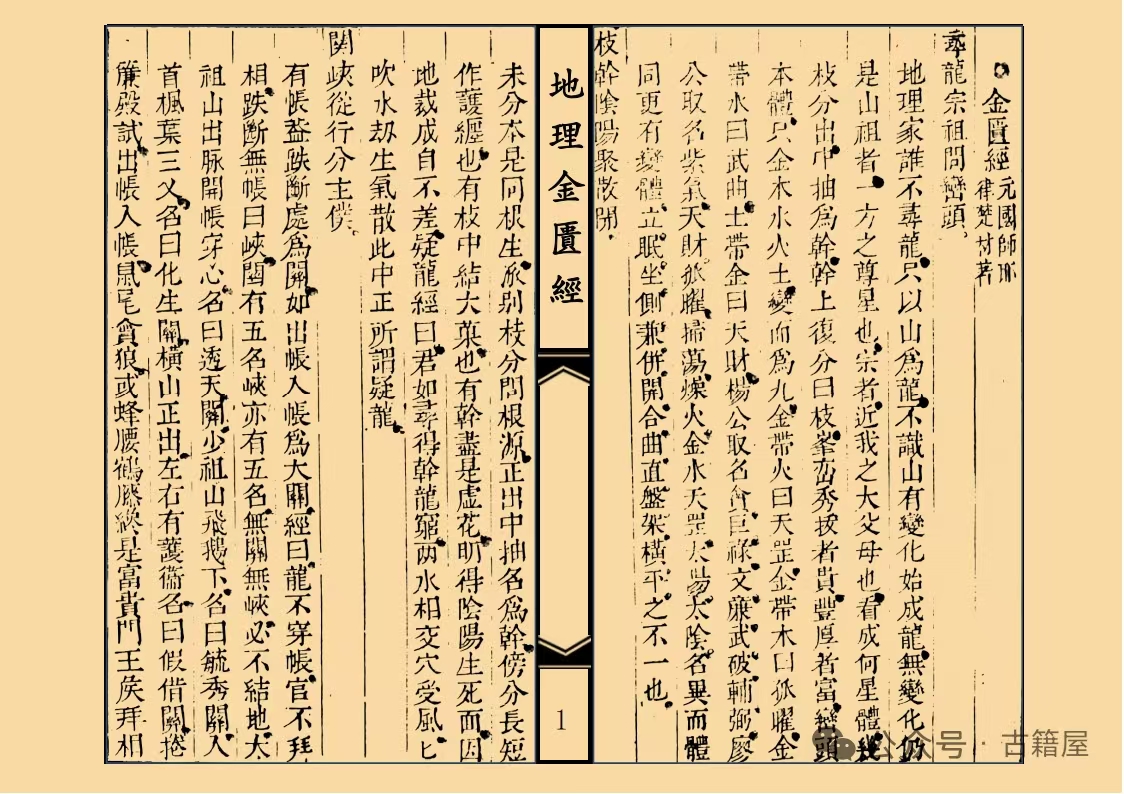 金匱經 元國師耶
律楚材著
尋龍宗祖問巒頭
地理家誰不尋龍只以山為龍不識山有變化始成龍無變化仍
是山祖者一方之尊星也宗者近我之大父母也看成何星體幾
枝分出中抽為幹幹上復分曰枝峯巒秀拔者貴豐厚者富巒頭
本體只金木水火土變而為九金帶火曰天罡金帶木曰孤曜金
帶水曰武曲土帶金曰天財楊公取名貪巨祿文廉武破輔弼廖
公取名紫氣天財孤曜掃蕩燥火金水天罡太陽太陰名異而體
同更有變體立眠坐側兼併開合曲直盤架橫平之不一也
枝幹陰陽聚散開
地理金匱經
1
未分本是同根生派别枝分問根源正出中抽名為幹傍分長短
作護纏也有枝中結大菓也有幹盡是虛花明得陰陽生死而因
地裁成自不差疑龍經曰君如尋得幹龍窮兩水相交穴受風
吹水劫生氣散此中正所謂疑龍
関峽從行分主僕
有帳葢跌斷處為開如出帳入帳為大關經曰龍不穿帳官不拜
相跌斷無帳曰峽関有五名峽亦有五名無關無峽必不結地太
祖山出脉開帳穿心名曰透天關少祖山飛鵝下名曰毓秀關入
首楓葉三义名曰化生關橫山正出左右有護衞名曰假借關捲
簾殿試出帳入帳鼠尾貪狼或蜂腰鶴膝縂是富貴門王矦拜相
公众号·古籍屋